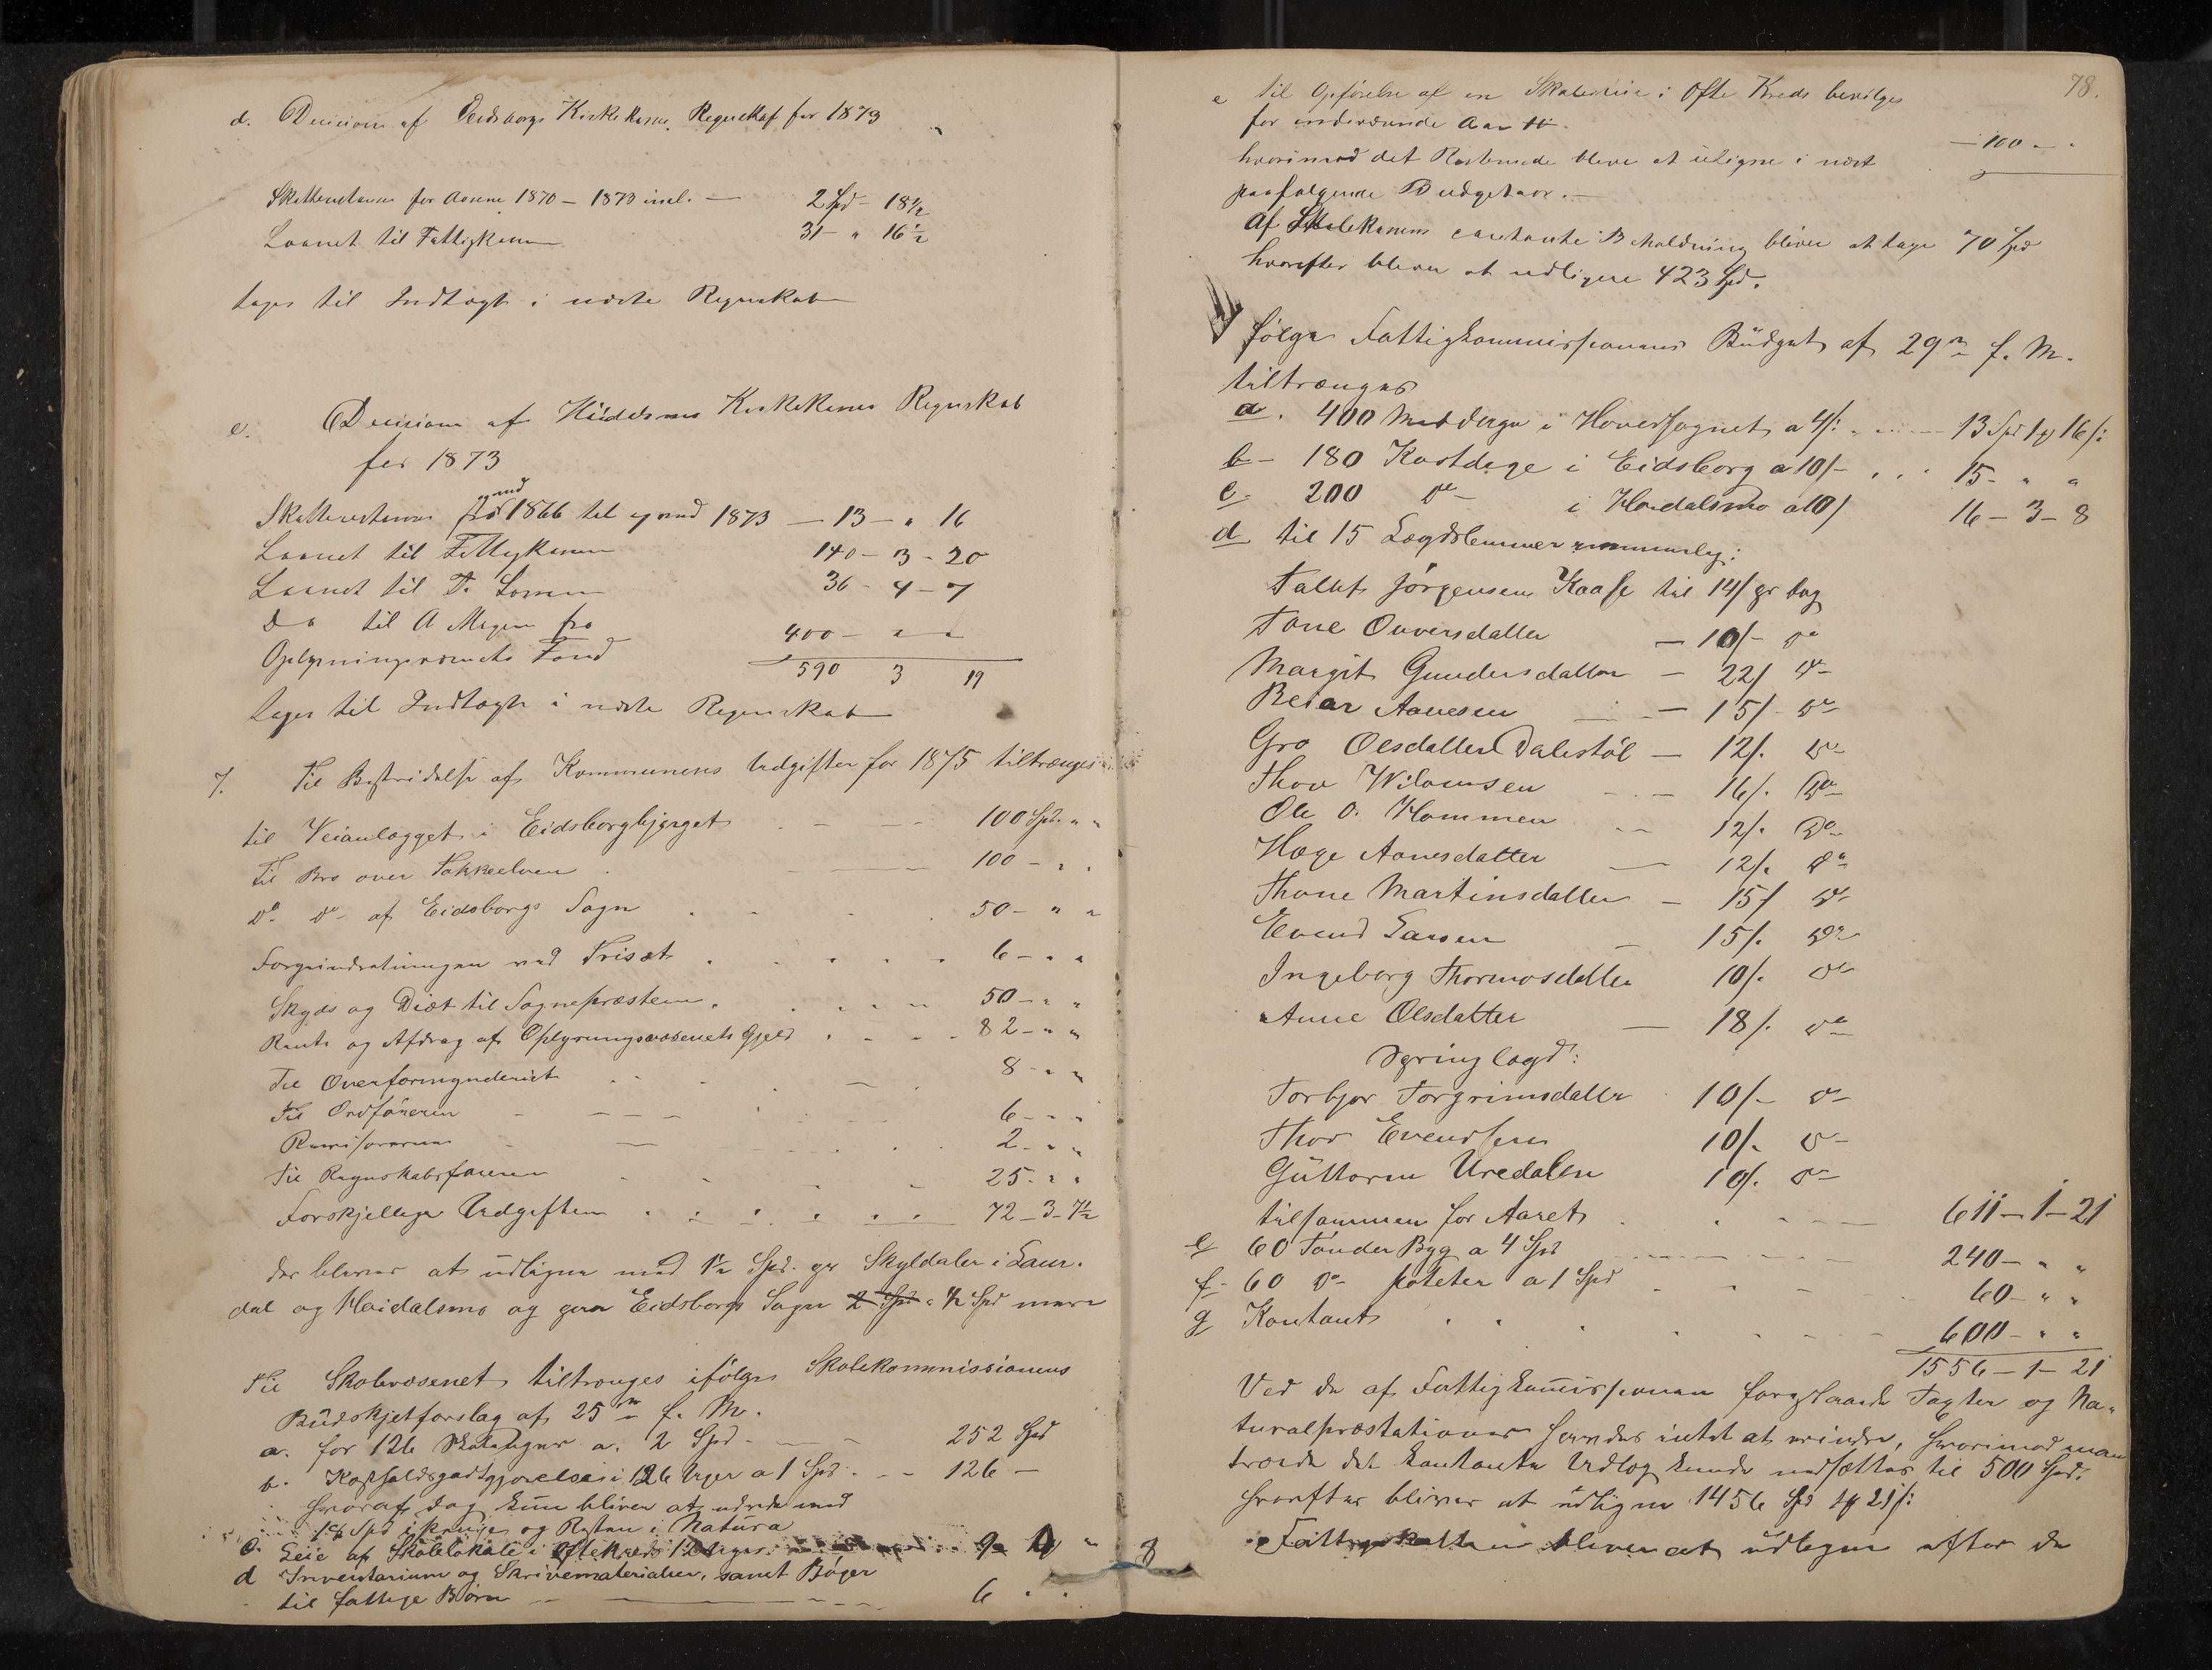 d. Decision af Eidsborgs Kirkekasses Regnskab for 1873
Skatterestancer for Aarene 1870 - 1873 incl. — 2 Spd - 18 1/2
Laanet til Fattigkassen 31 - " 16 1/2
tages til Indtægt i næste Regnskab
e. Decision af Høidalsmo Kirkekasses Regnskab
for 1873
Skatterestancer fra og med 1866 til og med 1873 — 13 - " 16
Laanet til Fattigkassen 140 - 3 - 20
Laanet til T. 36 - 4 - 7
Do til A fra
Oplysningsvæsenets Fond 400 - " "
590 3 19
tages til Indtægt i næste Regnskab
7. Til Bestridelse af Kommunens Udgifter for 1875 tiltrænges
til Veianlægget i Eidsborgbjerget - - - 100 Spd. " "
Til Bro over Tokkeelven . — 100 - " .
Do. Do - af Eidsborgs Sogn . - - . 50 - " "
ved Triset . . . . . 6 - " "
Skyds og Diæt til Sognepræsten . . . . 50 - " "
Rente og Afdrag af Oplysningsvæsenets Gjeld . . - - 82 - " "
Til Overformynderiet . . - — . 8 - " "
Til Ordføreren - - - - . 6 - " "
Revisorerne - — . . 2 - " "
Til Regnskabsføreren - - - 25 - " "
Forskjellige Udgifter . . . . . . — 72 - 3 - 7 1/2
der bliver at udligne med 1/2 Spd. pr Skyldaler i Laur-
dal og Høidalsmo og paa Eidsborgs Sogn 2 Spd " 1/2 Spd mere
Til Skolevæsenet tiltrænges ifølge Skolekommissionens
Büdskjetforslag af 25de f. M.
a. for 126 Skoleuger a. 2 Spd - — - 252 Spd
b. Kostholdsgodtgjørelse i 126 Uger a 1 Spd . - - 126 —
hvoraf dog kun bliver at udrede med
18 Spd i Penge og Resten i Natura
c. Leie af Skolelokale i Ofte Kreds 12 Uger 9 "
d Inventarium og Skrivematerialier, samt Bøger
til fattige Børn — — - - - 6 . .
78.
e til Opførelse af en Skolestue i Ofte Kreds bevilges
for indeværende Aar — 100 - "
hvorimod det Resterende bliver at udligne i næst
paafølgende Budgetaar. —
Af Skolekassens contante Beholdning bliver at tage 70 Spd
hvorefter bliver at udligne 423 Spd.
følge Fattigkommissionens Büdget af 29de f. M.
tiltrænges
a. 400 i Hovedsognet a 4/: - - - 13 Spd 1 16/:
b - 180 Kostdage i Eidsborg a 10/- . . . 15 - " "
c. 200 do - i Høidalsmo a 10/ 16 - 3 - 8
d. til 15 Lægdslemmer nemmelig:
Tallef Jørgensen Kaase til 14/ pr Dag
Tone Ouversdatter — 10/- do
Margit Gundersdatter - 22/ do -
Beiar Aanesen — 15/- do -
Gro Olsdatter Dalestøl — 12/. do -
Thov Wilomsen - - — 16/. Do -
Ole O. Hommen - - 12/. Do -
Hæge Aanesdatter — 12/. do -
Thone Martinsdatter - 15/ do -
Evend Larsen - 15/. do -
Ingeborg Thormosdatter 10/. do -
Anne Olsdatter — 18/. do -
Springlægd:
Torbjør Torgrimsdatter 10/- do -
Thor Evendsen 10/. do -
Guttorm Uredalen 10/. do -
tilsammen for Aaret . - - - — 611 - 1 - 21
e 60 Tønder Byg a 4 Spd - - - - 240 - " "
f - 60 do - poteter a 1 Spd - - - 60 - " "
g Kontant . . . . - - - 600 - " "
1556 - 1 - 21
Ved de af Fattigkommissionen foreslaaede Taxter og Na-
turalpræstationer fandtes intet at erindre, hvorimod man
troede det kontante Udlæg kunde nedsættes til 500 Spd.
hvorefter bliver at udligne 1456 Spd 1 21/:
Fattigskatten bliver at udligne efter de
3